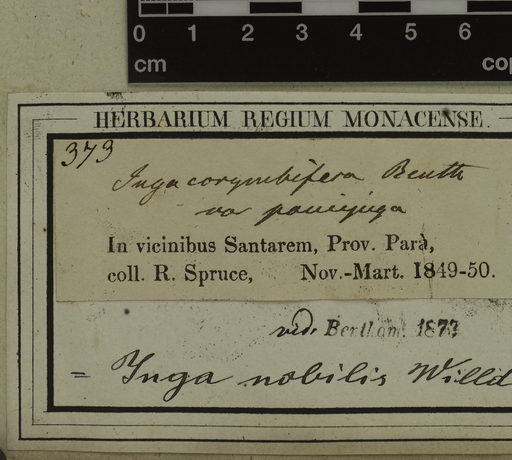 0 1 2 3 4 5 6
cm cop
HERBARIUM REGIUM MONACENSE.
373
Inga corymbifera Benth
var paucijuga
In vicinibus Santarem, Prov. Parà,
coll. R. Spruce, Nov.-Mart. 1849-50.
vid. Bentham 1873
= Inga nobilis Willd